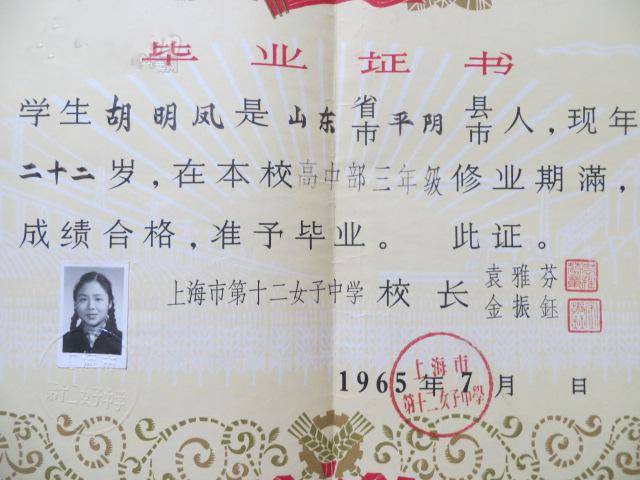 毕业证书
学生胡明凤是山东省市平阴县市人，现年
二十二岁，在本校高中部三年级修业期滿，
成绩合格，准予毕业。 此证。
上海市第十二女子中学 校长 袁雅芬
金振鈺
1965年7月 日
上海市
第十二女子中學
上海市
第十二女子中學